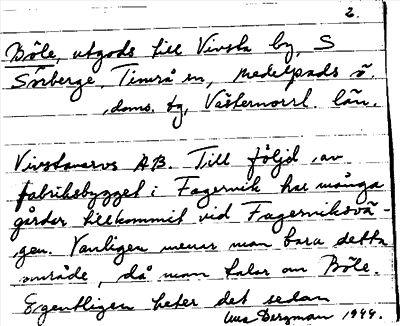 2.
Böle, utgods till Vivsta by, S
Sörberge, Timrå sn, Medelpads ö.
doms. tg, Västernorrl. län.
Vivstavarvs AB. Till följd av
fabriksbygget i Fagervik har många
gårdar tillkommit vid Fagerviksvä-
gen. Vanligen menar man bara detta
område, då man talar om Böle.
Egentligen heter det sedan
Bergman 1944.